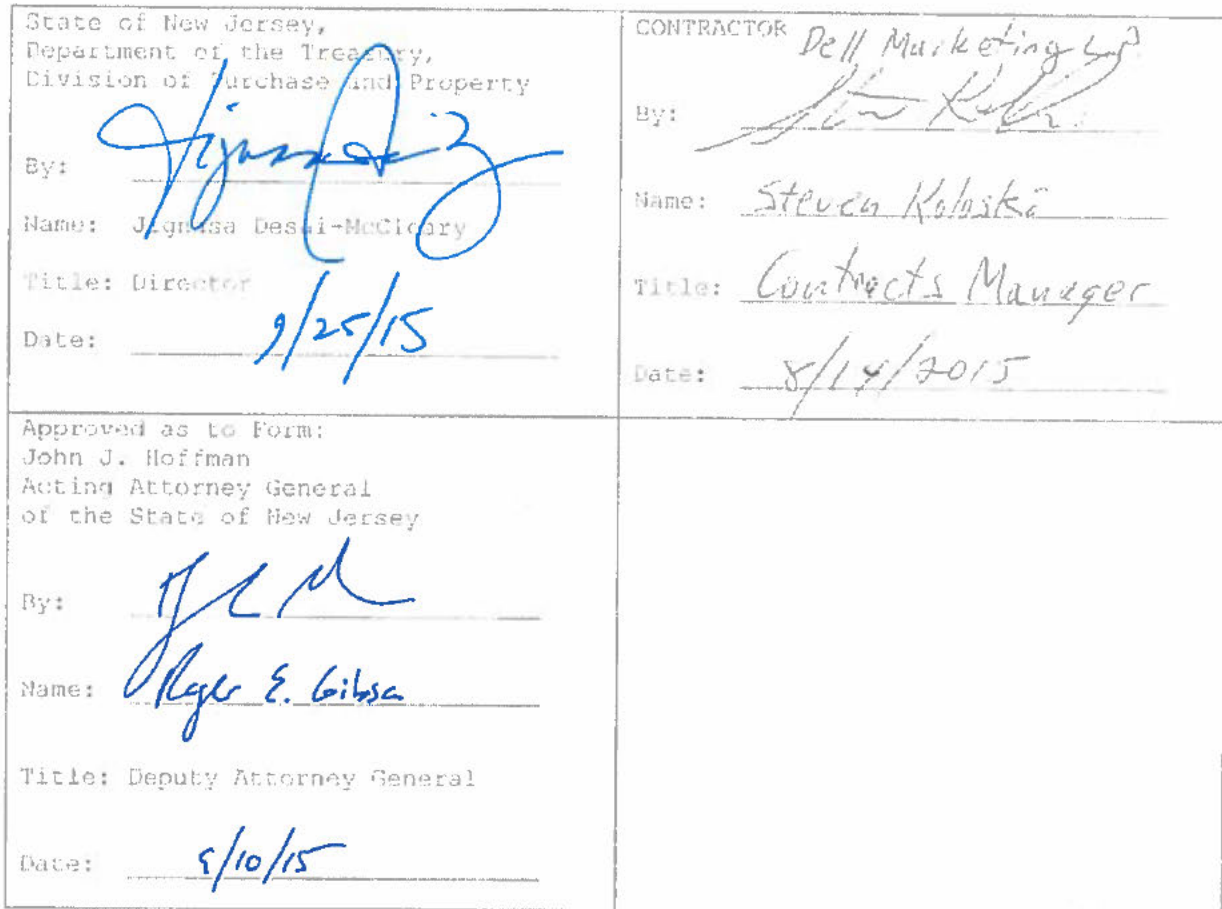 State of New Jersey,
Department of the Treasury,
Division of Purchase and Property
By:
Name: Jignasa Desai-McCleary
Title: Director
Date: 9/25/15
CONTRACTOR Dell Marketing L.P.
By:
Name: Steven Koloskā
Title: Contracts Manager
Date: 8/14/2015
Approved as to Form:
John J. Hoffman
Acting Attorney General
of the State of New Jersey
By:
Name: Roger E. Gibson
Title: Deputy Attorney General
Date: 9/10/15